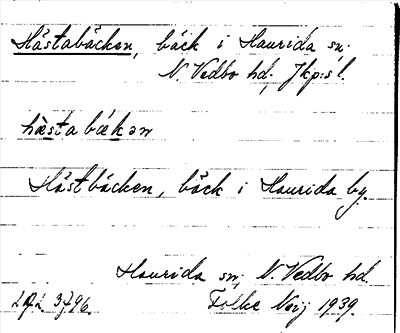 Hästabäcken, bäck i Haurida sn;
N. Vedbo hd; Jkp:s l.
hästabäkən
Hästbäcken, bäck i Haurida by.
Haurida sn; N. Vedbo hd.
Folke Neij 1939.